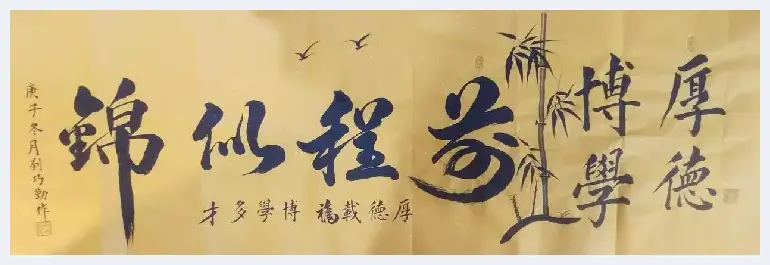 厚德
博學
前程似錦
厚德載福 博學多才
庚子冬月刘巧勤作